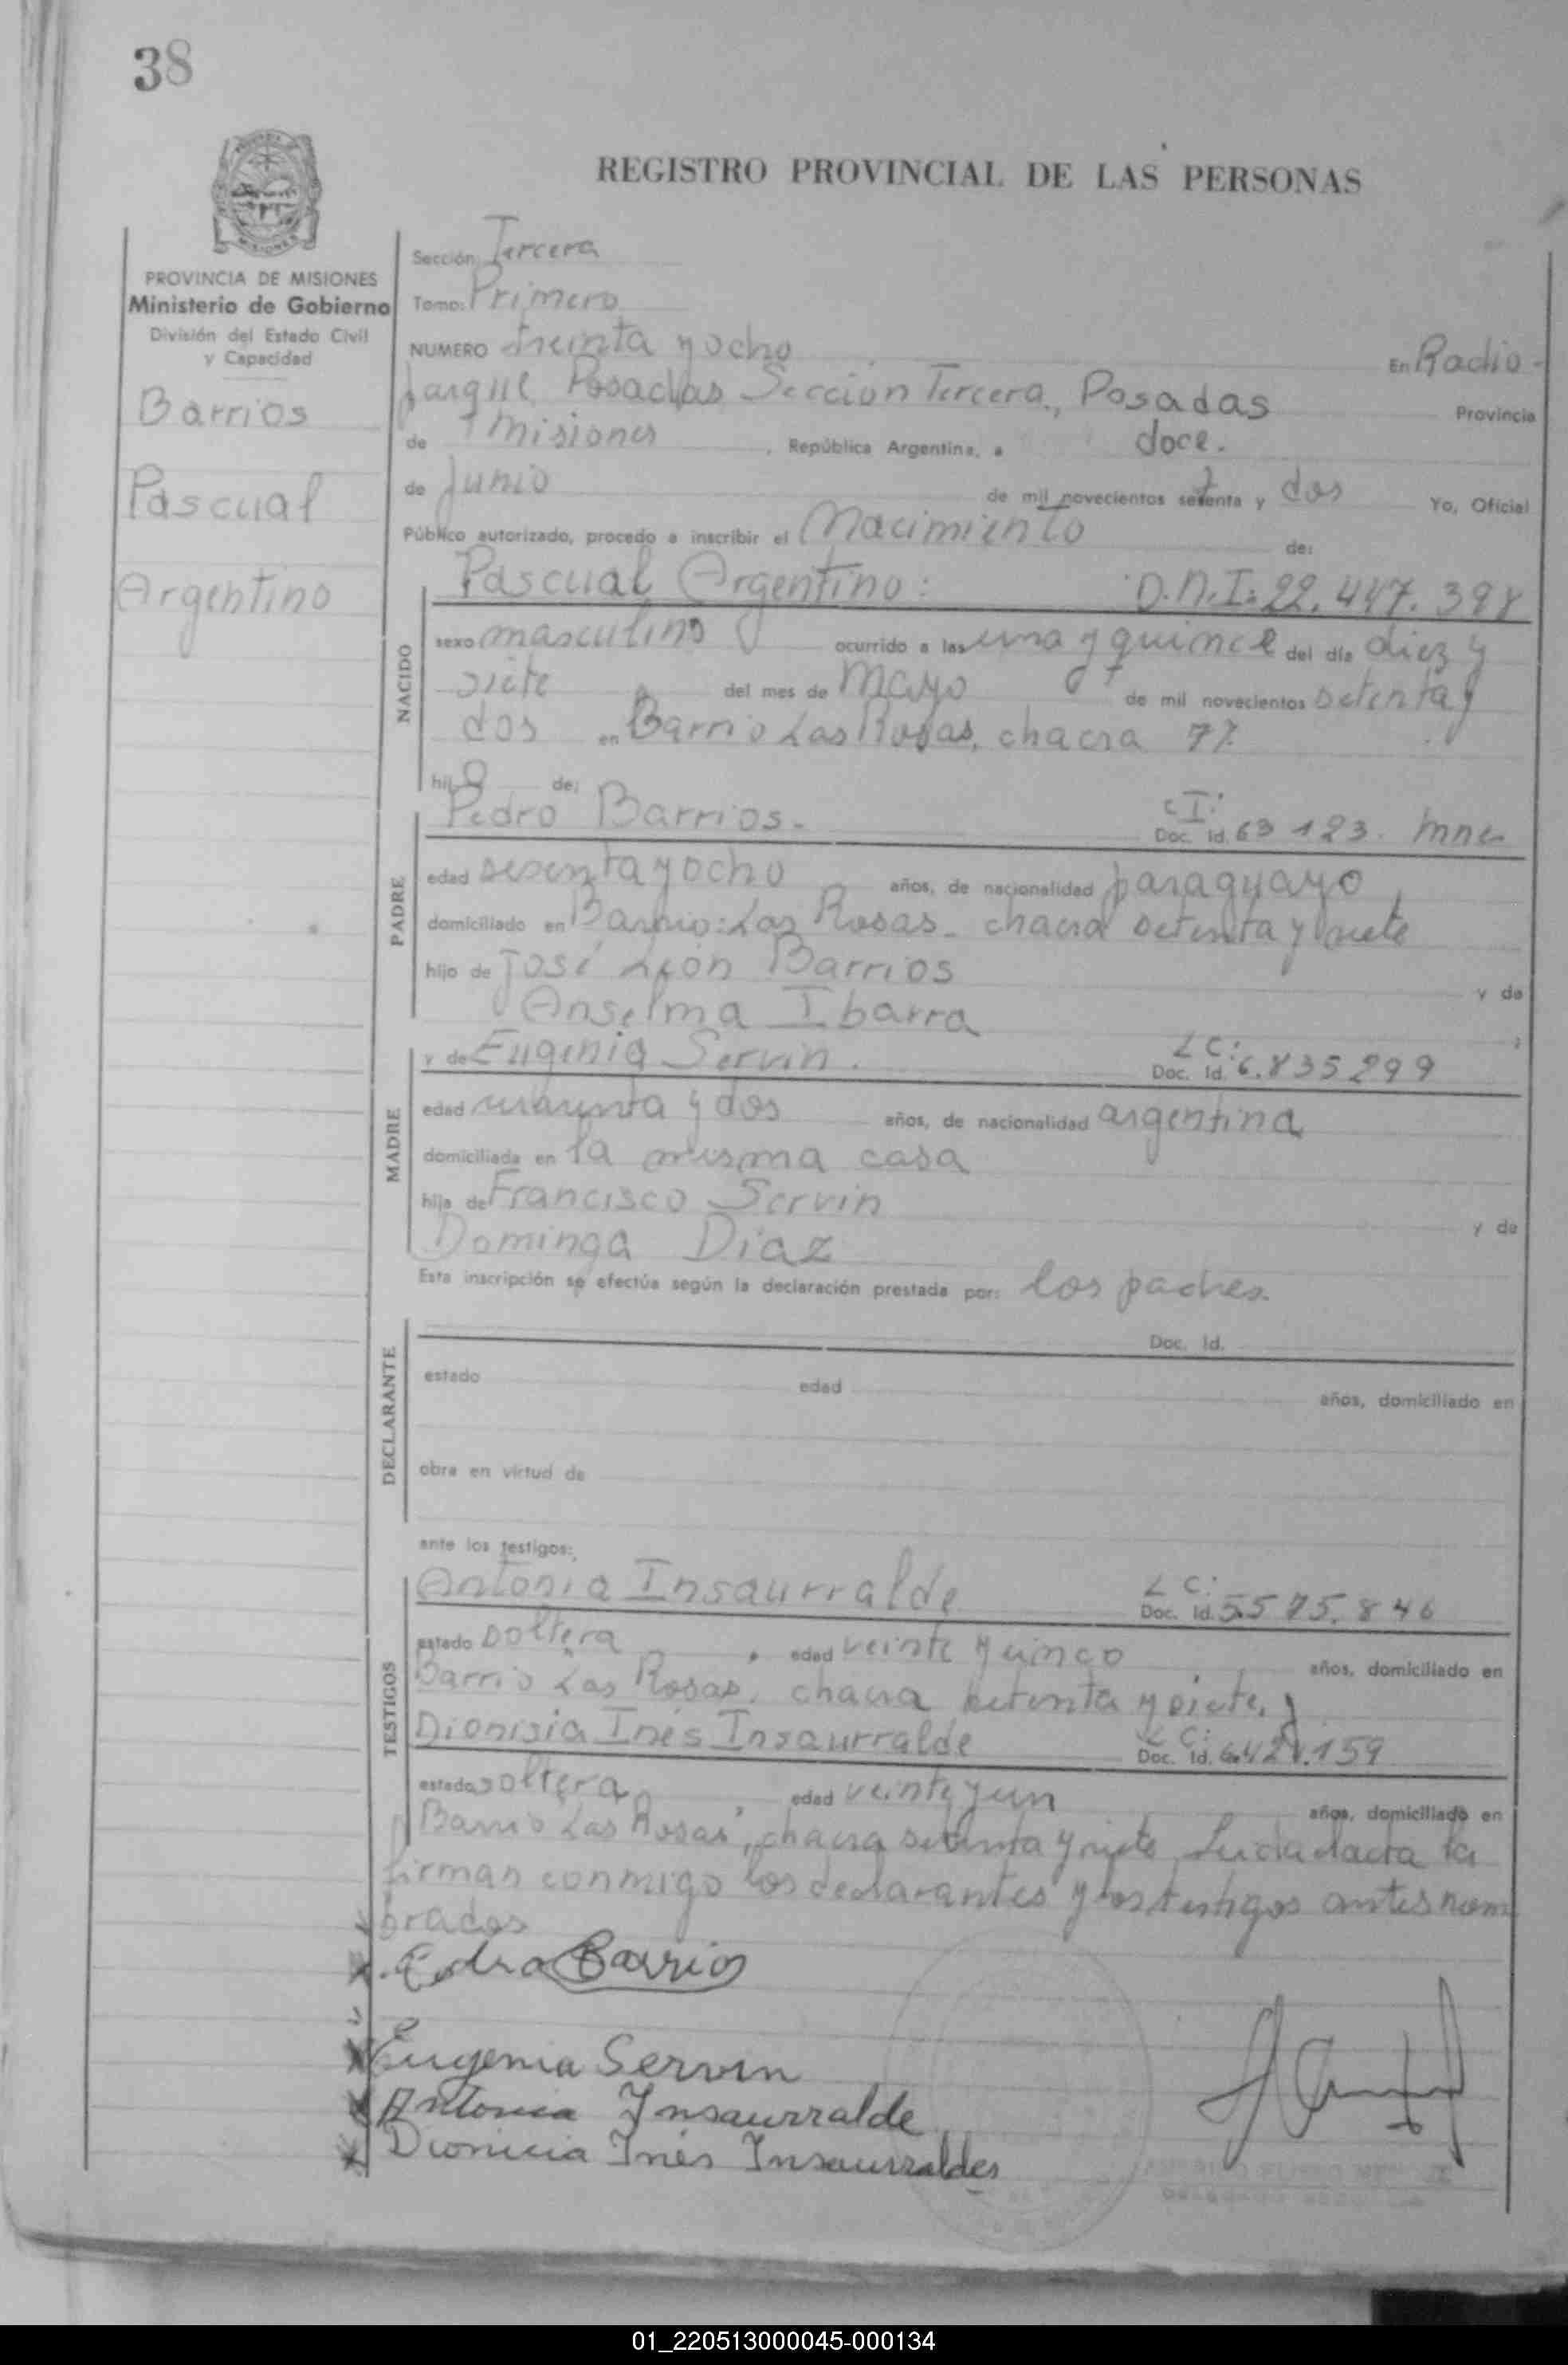 38
REGISTRO PROVINCIAL DE LAS PERSONAS
PROVINCIA DE MISIONES
Ministerio de Gobierno
División del Estado Civil
y Capacidad
Barrios
Pascual
Argentino
Sección: Tercera
Tomo: Primero
NUMERO treinta y ocho En Radio-
parque Posadas Sección Tercera, Posadas Provincia
de Misiones, República Argentina, a doce.
de Junio de mil novecientos setenta y dos Yo, Oficial
Público autorizado, procedo a inscribir el Nacimiento de:
NACIDO
Pascual Argentino: D.N.I: 22.447.398
sexo masculino ocurrido a las una y quince del día diez y
siete del mes de Mayo de mil novecientos setenta y
dos en Barrio Las Rosas, chacra 77.
hijo de:
PADRE
Pedro Barrios.- C I: Doc. Id. 63 123. mnes
edad sesenta y ocho años, de nacionalidad paraguayo,
domiciliado en Barrio: Las Rosas- chacra setenta y siete
hijo de José León Barrios y de
Anselma Ibarra
MADRE
y de Eugenia Servin. L C: Doc. Id. 6.835299
edad cuarenta y dos años, de nacionalidad argentina
domiciliada en la misma casa
hija de Francisco Servin y de
Dominga Diaz
Esta inscripción se efectúa según la declaración prestada por: los padres.
DECLARANTE
Doc. Id.
estado edad años, domiciliado en
obra en virtud de
ante los testigos:
TESTIGOS
Antonia Insaurralde L C: Doc. Id. 5.575.846
estado soltera, edad veinte y cinco años, domiciliado en
Barrio Las Rosas, chacra setenta y siete, y
Dionisia Inés Insaurralde L C: Doc. Id. 6.421.159
estado soltera, edad veinte y un años, domiciliado en
Barrio Las Rosas, chacra setenta y siete, Leida el acta la
firman conmigo los declarantes y los testigos antes nom
brados
Pedro Barrios
Eugenia Servin
Antonia Insaurralde
Dionicia Inés Insaurraldes
01_220513000045-000134